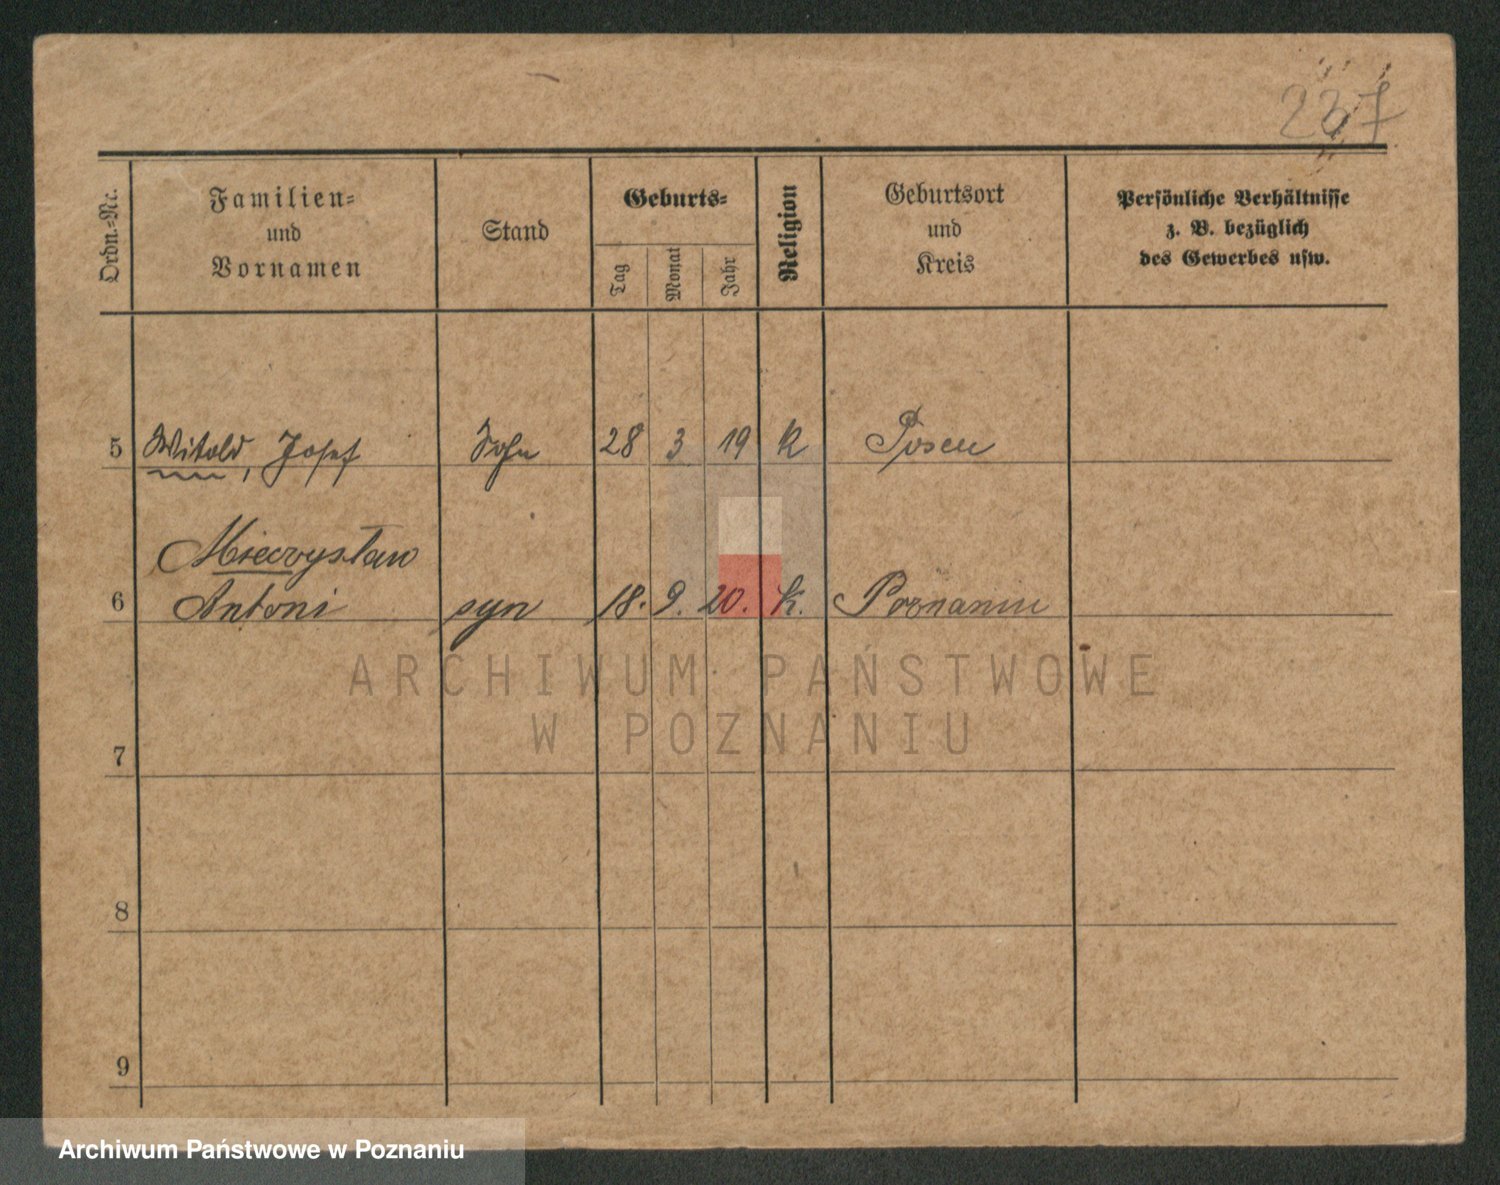 237
Ordn.-Nr.
Familien-
und
Vornamen
Stand
Geburts-
Tag
Monat
Jahr
Religion
Geburtsort
und
Kreis
Persönliche Verhältnisse
z. B. bezüglich
des Gewerbes usw.
5 Witold, Josef Sohn 28 3 19 K Posen
Mieczysław
6 Antoni syn 18. 9. 20. K. Poznaniu
ARCHIWUM PAŃSTWOWE
W POZNANIU
7
8
9
Archiwum Państwowe w Poznaniu